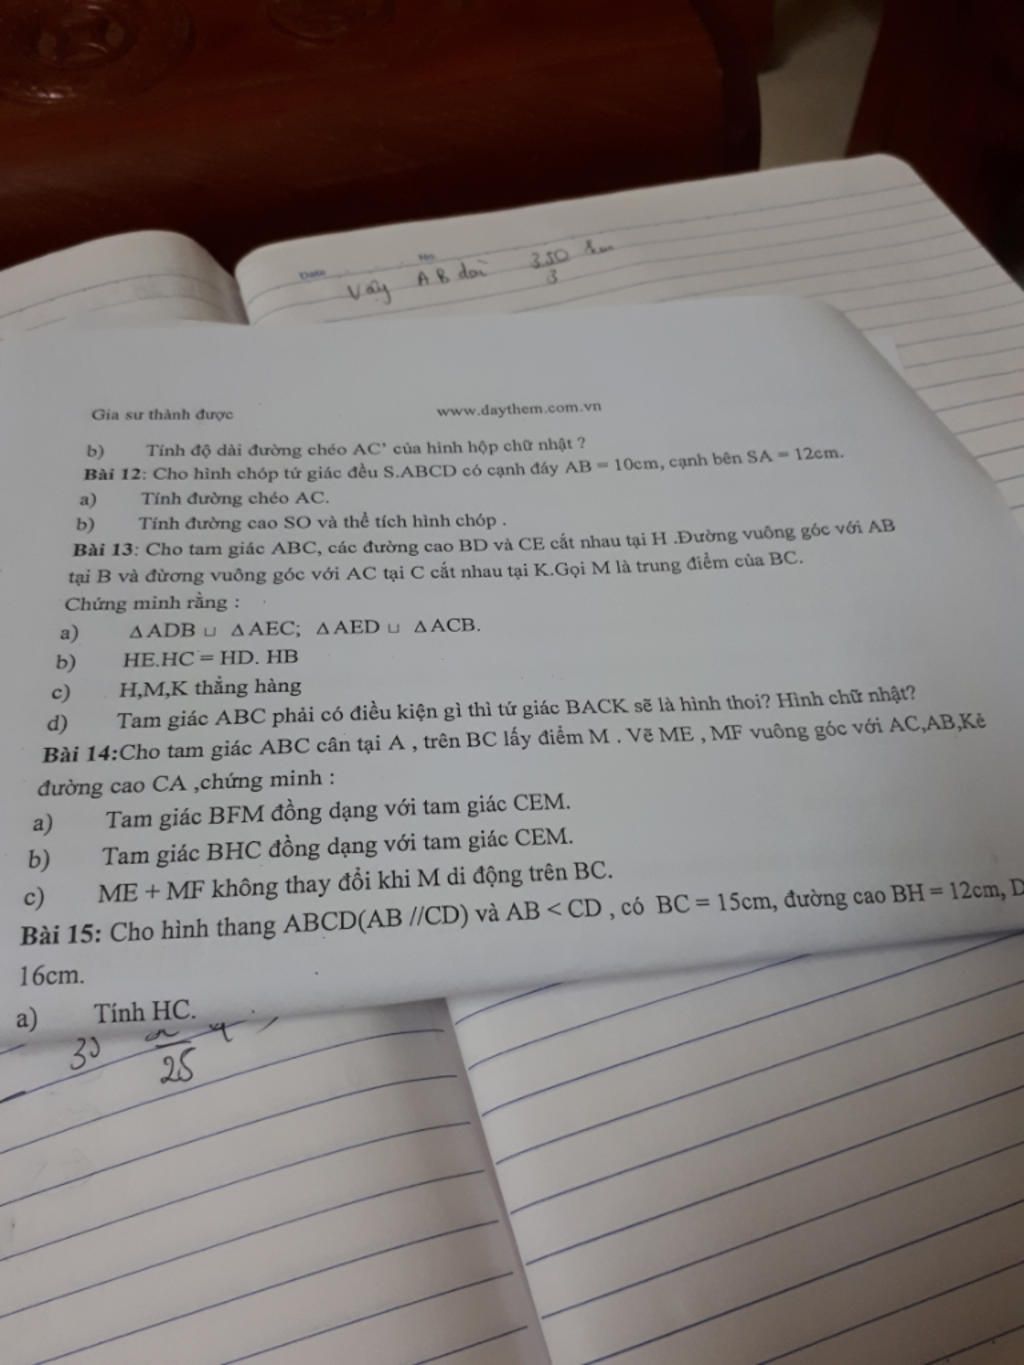 Date
No.
Vậy AB dài 350 km
3
Gia sư thành được www.daythem.com.vn
b) Tính độ dài đường chéo AC' của hình hộp chữ nhật ?
Bài 12: Cho hình chóp tứ giác đều S.ABCD có cạnh đáy AB = 10cm, cạnh bên SA = 12cm.
a) Tính đường chéo AC.
b) Tính đường cao SO và thể tích hình chóp .
Bài 13: Cho tam giác ABC, các đường cao BD và CE cắt nhau tại H .Đường vuông góc với AB
tại B và đừơng vuông góc với AC tại C cắt nhau tại K.Gọi M là trung điểm của BC.
Chứng minh rằng :
a) Δ ADB ⊔ Δ AEC; Δ AED ⊔ Δ ACB.
b) HE.HC = HD. HB
c) H,M,K thẳng hàng
d) Tam giác ABC phải có điều kiện gì thì tứ giác BACK sẽ là hình thoi? Hình chữ nhật?
Bài 14:Cho tam giác ABC cân tại A , trên BC lấy điểm M . Vẽ ME , MF vuông góc với AC,AB,Kẻ
đường cao CA ,chứng minh :
a) Tam giác BFM đồng dạng với tam giác CEM.
b) Tam giác BHC đồng dạng với tam giác CEM.
c) ME + MF không thay đổi khi M di động trên BC.
Bài 15: Cho hình thang ABCD(AB //CD) và AB < CD , có BC = 15cm, đường cao BH = 12cm, D
16cm.
a) Tính HC.
25